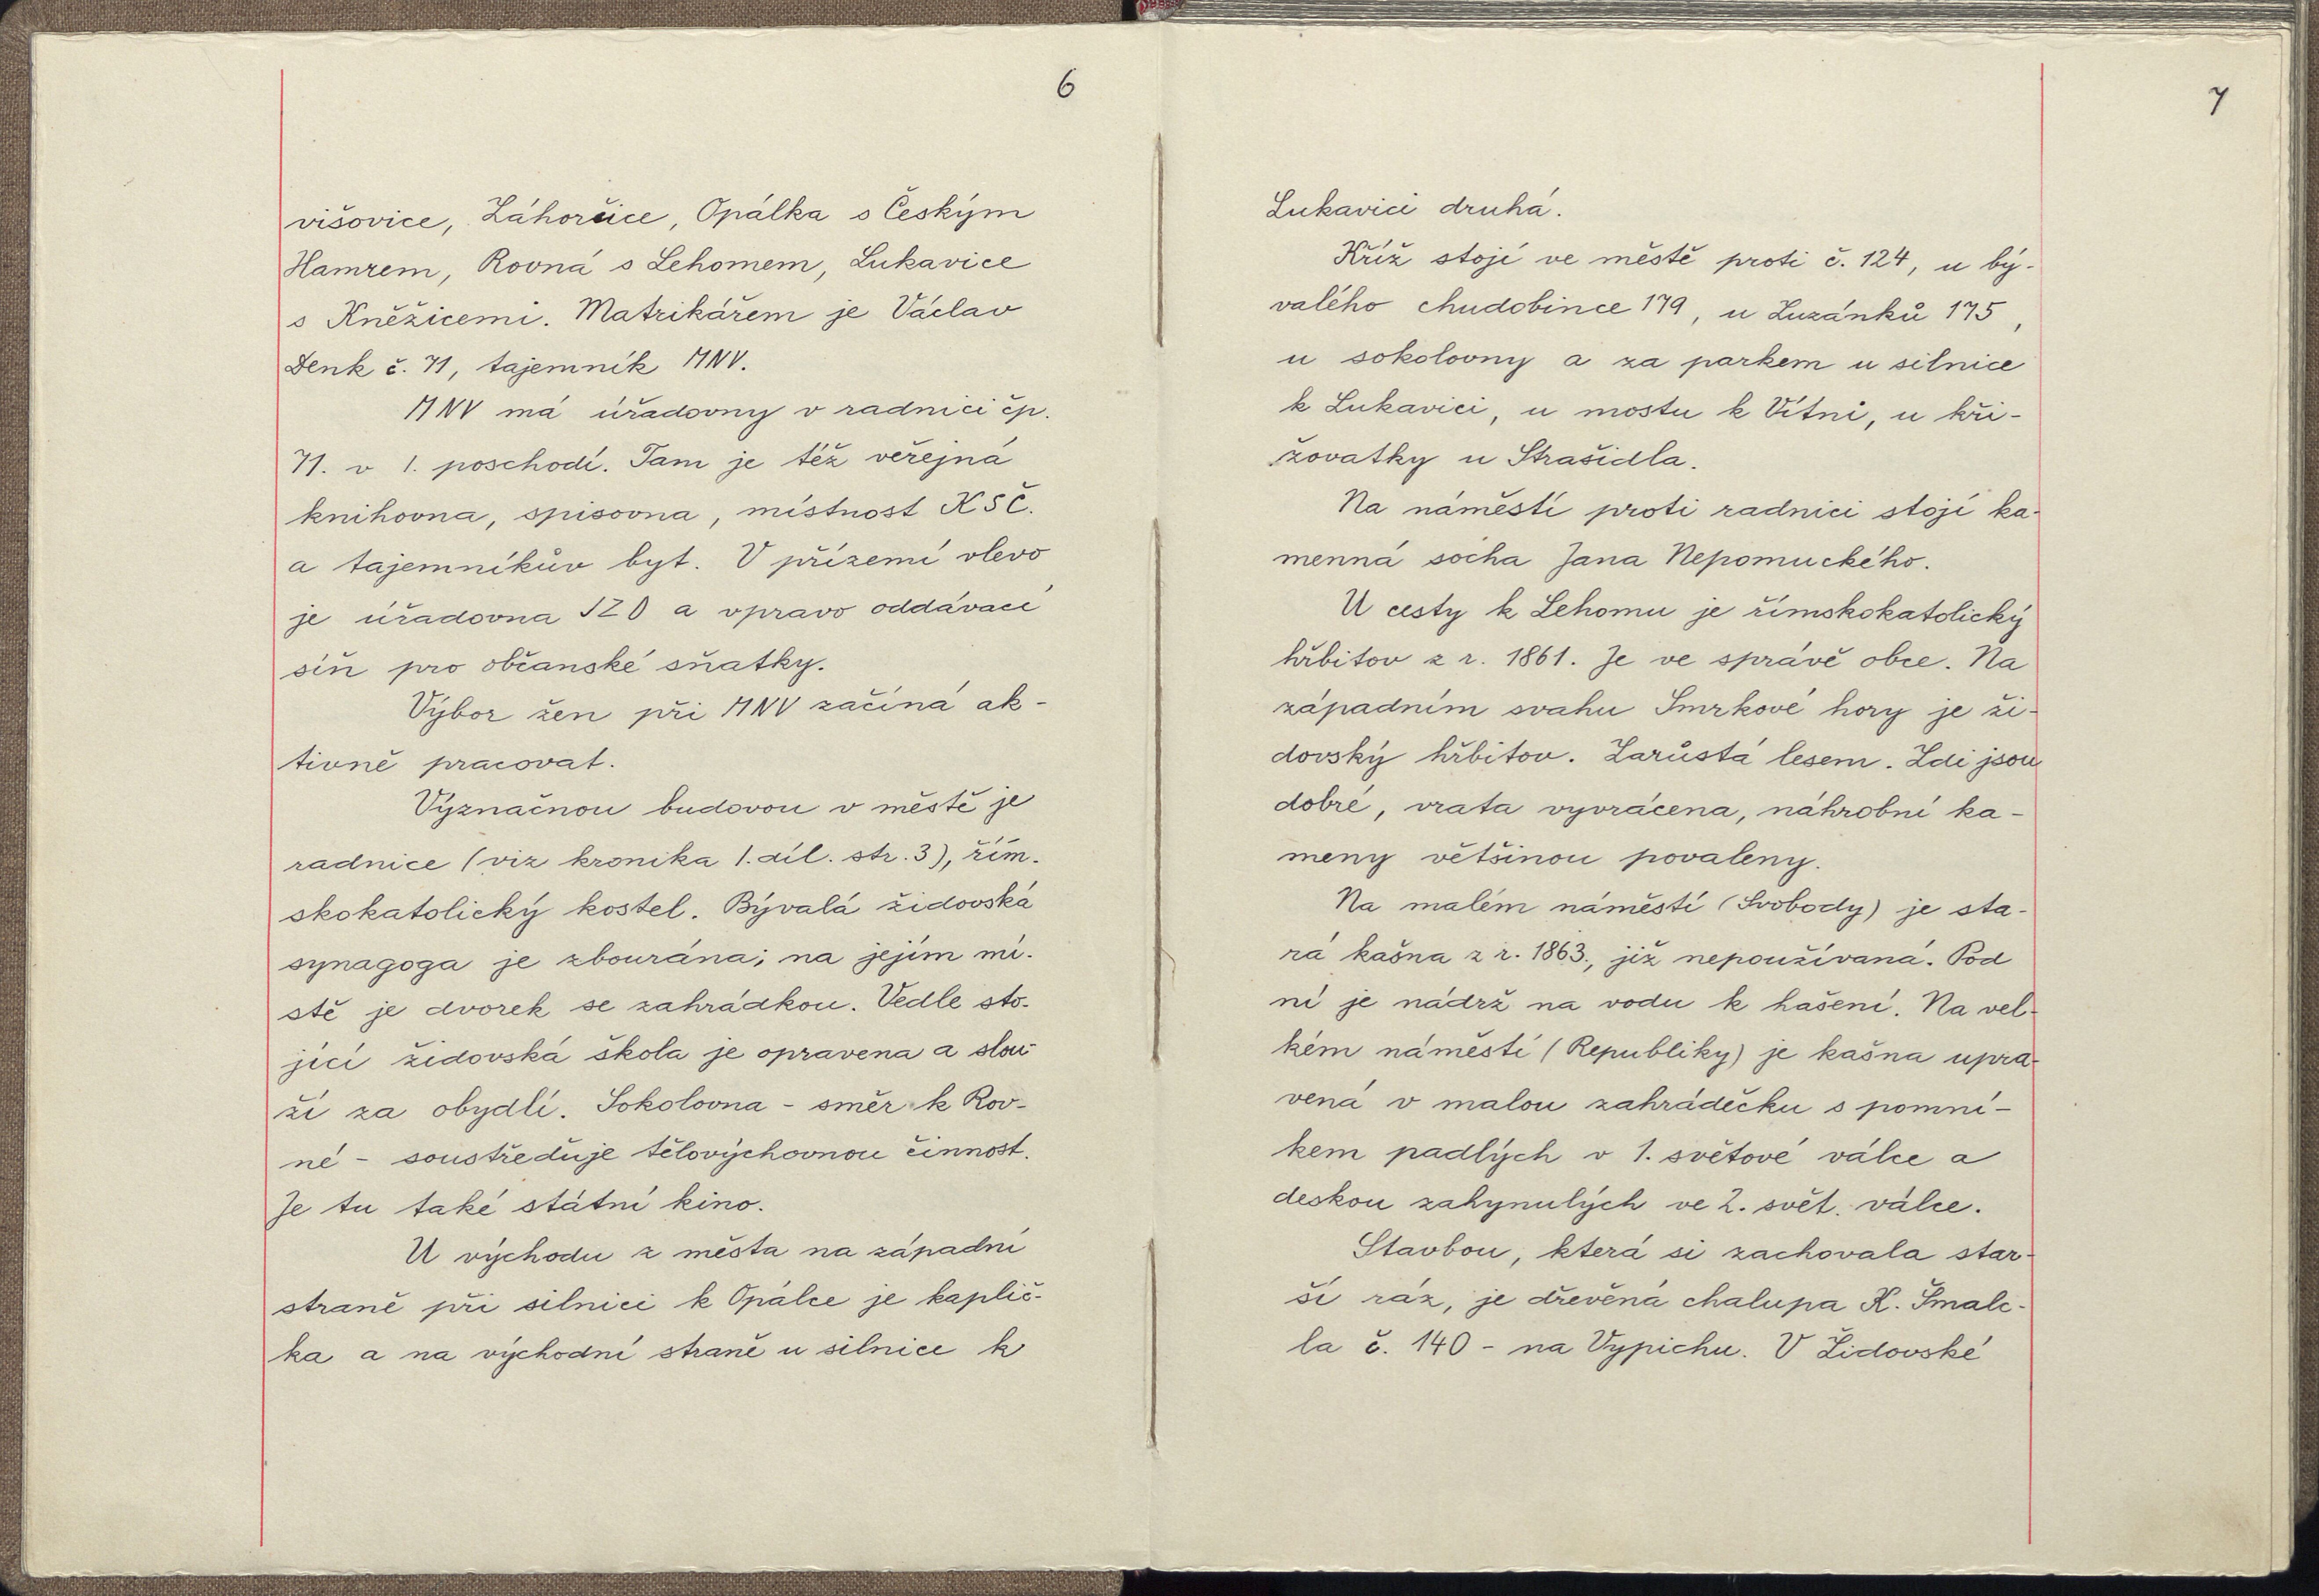 6
višovice, Záhorčice, Opálka s Českým
Hamrem, Rovná s Lehomem, Lukavice
s Kněžicemi. Matrikářem je Václav
Denk č. 71, tajemník MNV.
MNV má úřadovny v radnici čp.
71. v 1. poschodí. Tam je též veřejná
knihovna, spisovna, místnost KSČ.
a tajemníkův byt. V přízemí vlevo
je úřadovna JZD a vpravo oddávací
síň pro občanské sňatky.
Výbor žen při MNV začíná ak-
tivně pracovat.
Význačnou budovou v městě je
radnice (viz kronika 1. díl. str. 3), řím-
skokatolický kostel. Bývalá židovská
synagoga je zbourána; na jejím mí-
stě je dvorek se zahrádkou. Vedle sto-
jící židovská škola je opravena a slou-
ží za obydlí. Sokolovna - směr k Rov-
né - soustřeďuje tělovýchovnou činnost.
Je tu také státní kino.
U východu z města na západní
straně při silnici k Opálce je kaplič-
ka a na východní straně u silnice k
7
Lukavici druhá.
Kříž stojí ve městě proti č. 124, u bý-
valého chudobince 179, u Luzánků 175,
u sokolovny a za parkem u silnice
k Lukavici, u mostu k Vítni, u kři-
žovatky u Strašidla.
Na náměstí proti radnici stojí ka-
menná socha Jana Nepomuckého.
U cesty k Lehomu je římskokatolický
hřbitov z r. 1861. Je ve správě obce. Na
západním svahu Smrkové hory je ži-
dovský hřbitov. Zarůstá lesem. Zdi jsou
dobré, vrata vyvrácena, náhrobní ka-
meny většinou povaleny.
Na malém náměstí (Svobody) je sta-
rá kašna z r. 1863., již nepoužívaná. Pod
ní je nádrž na vodu k hašení. Na vel-
kém náměstí (Republiky) je kašna upra-
vená v malou zahrádečku s pomní-
kem padlých v 1. světové válce a
deskou zahynulých ve 2. svět. válce.
Stavbou, která si zachovala star-
ší ráz, je dřevěná chalupa K. Šmalc-
la č. 140 - na Vypichu. V Židovské